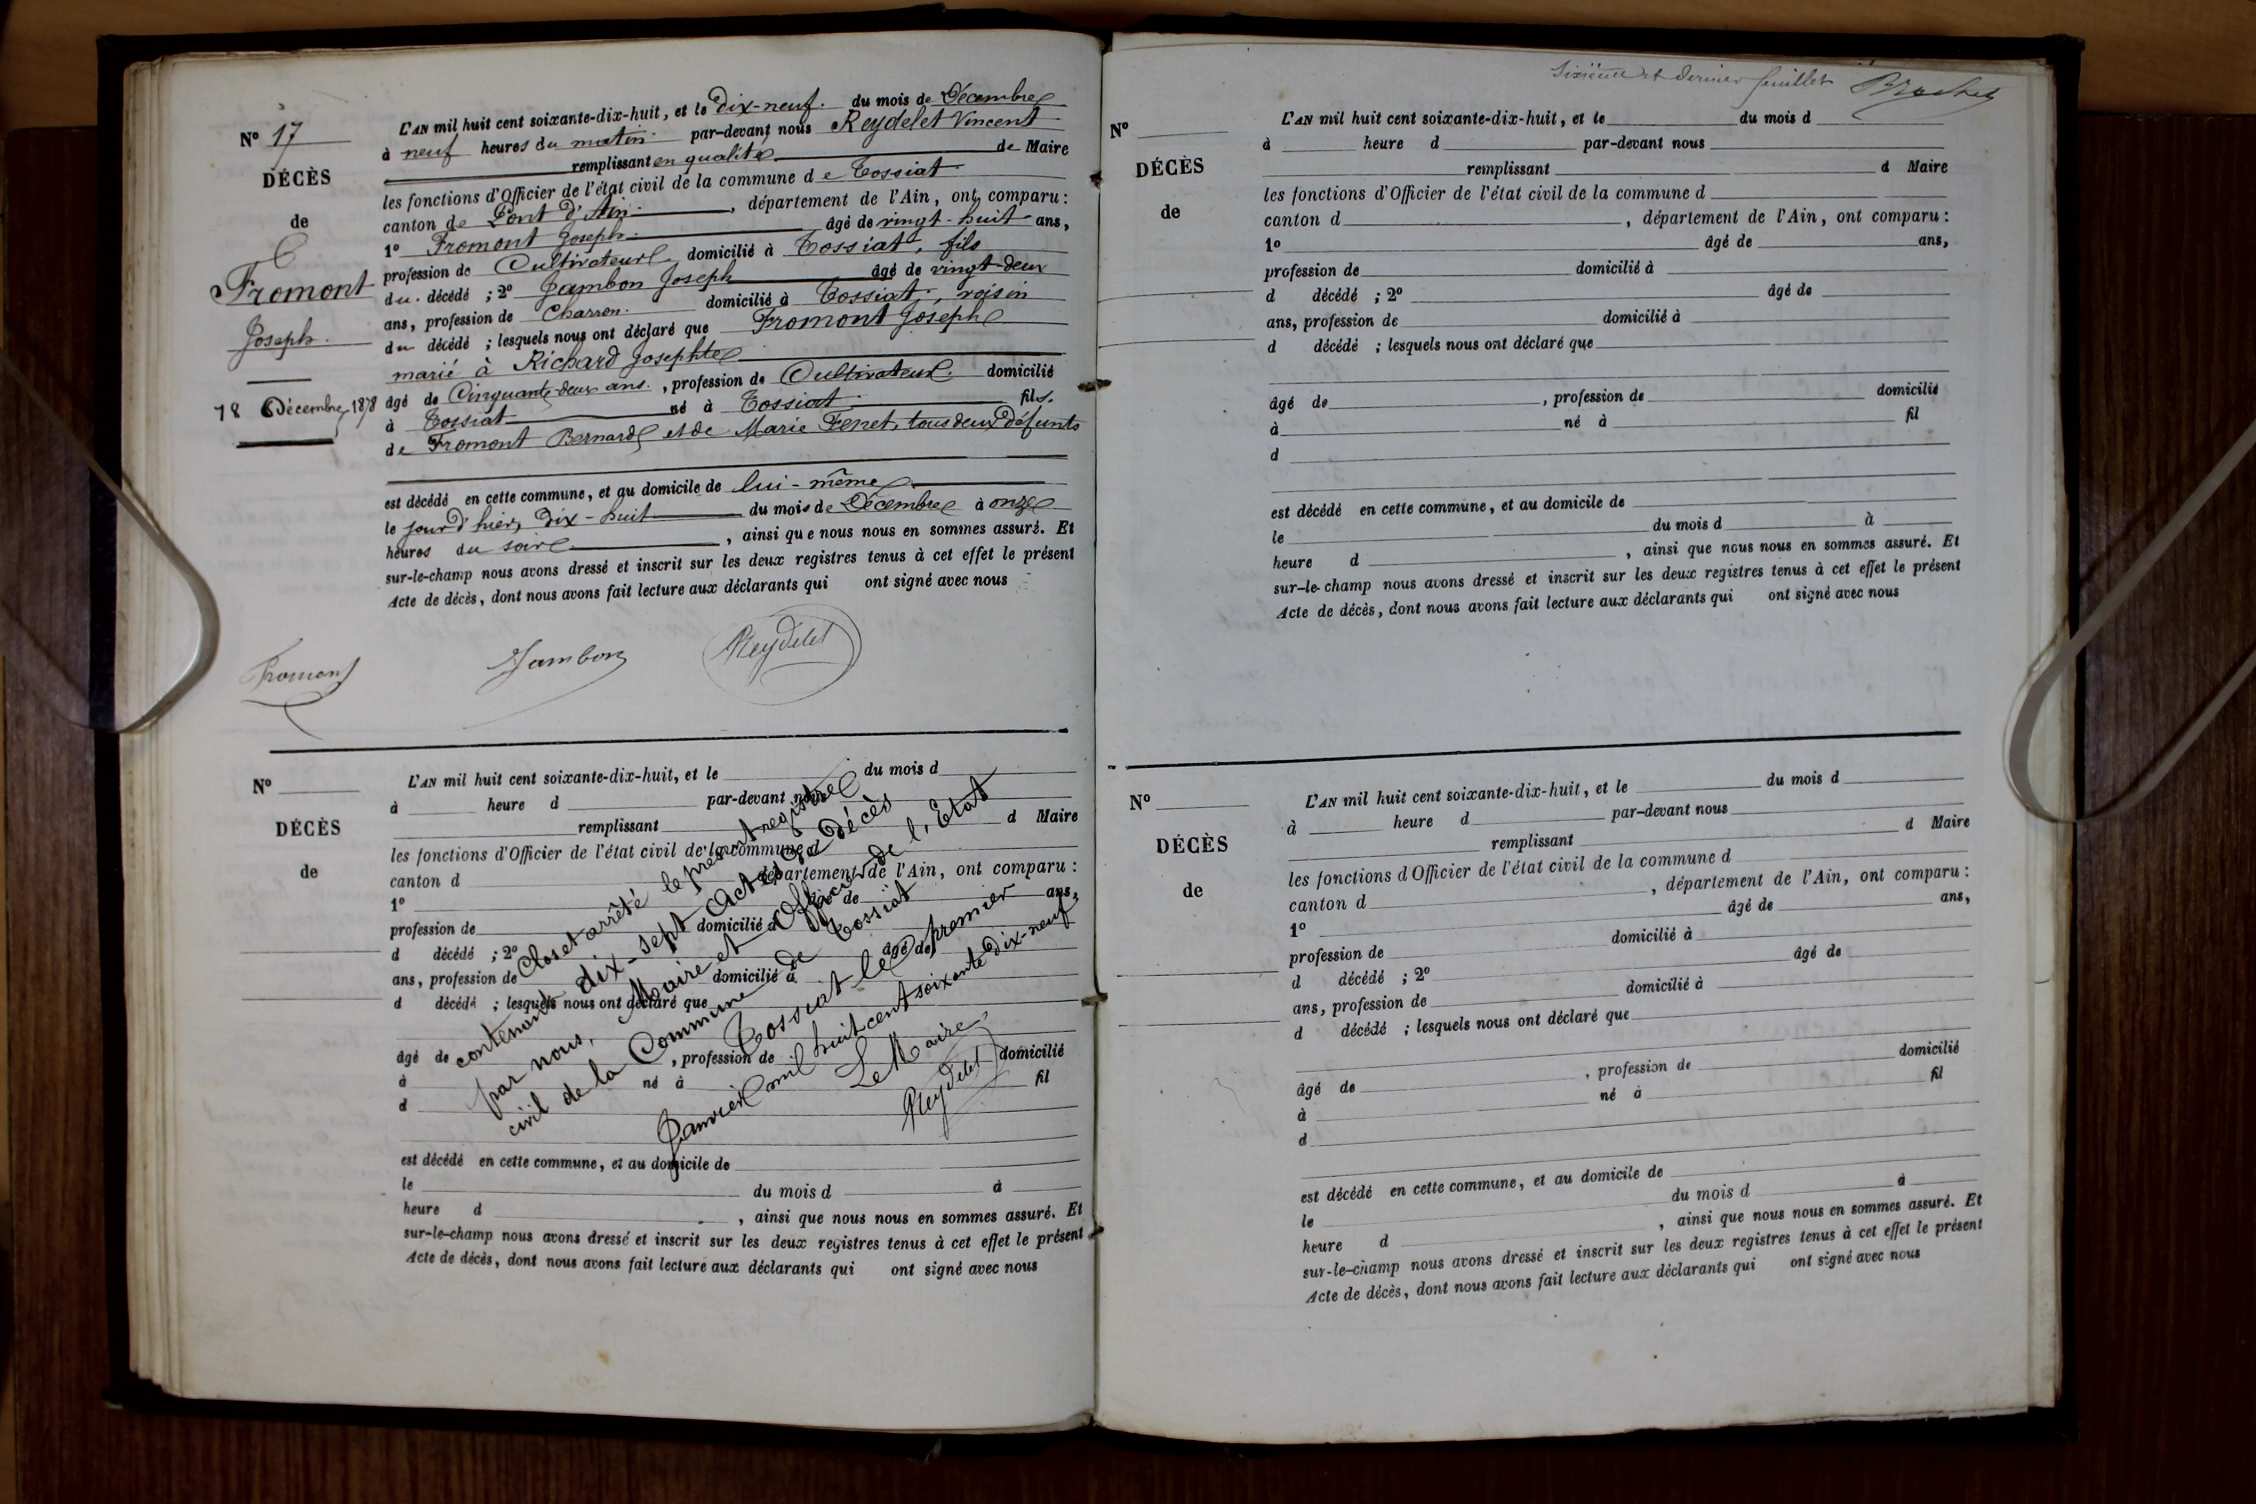 L'AN mil huit cent soixante-dix-huit, et le dix-neuf. du mois de Décembre
N° 17
à neuf heures du matin par-devant nous Reydelet Vincent
remplissant en qualité de Maire
DÉCÈS
les fonctions d'Officier de l'état civil de la commune de Tossiat
de
canton de Pont d'Ain , département de l'Ain, ont comparu :
1° Fromont Joseph âgé de vingt-huit ans,
Fromont
profession de Cultivateur domicilié à Tossiat, fils
du décédé ; 2° Jambon Joseph âgé de vingt-deux
Joseph.
ans, profession de Charron. domicilié à Tossiat, voisin
du décédé ; lesquels nous ont déclaré que Fromont Joseph
marié à Richard Josephte
18 Décembre 1878
âgé de Cinquante-deux ans. , profession de Cultivateur domicilié
à Tossiat né à Tossiat fils
de Fromont Bernard et de Marie Fenet, tous deux Défunts
est décédé en cette commune, et au domicile de lui-même
le jour d'hier, dix-huit du mois de Décembre à onze
heures du soir , ainsi que nous nous en sommes assuré. Et
sur-le-champ nous avons dressé et inscrit sur les deux registres tenus à cet effet le présent
Acte de décès, dont nous avons fait lecture aux déclarants qui ont signé avec nous
Fromont Jambon Reydelet
N°
L'AN mil huit cent soixante-dix-huit, et le du mois d
à heure d par-devant nous
DÉCÈS
remplissant d Maire
les fonctions d'Officier de l'état civil de la commune d
de
canton d département de l'Ain, ont comparu :
1° âgé de ans,
profession de domicilié à
d décédé ; 2° âgé de
ans, profession de domicilié à
d décédé ; lesquels nous ont déclaré que
âgé de , profession de domicilié
à né à fil
d
est décédé en cette commune, et au domicile de
le du mois d à
heure d , ainsi que nous nous en sommes assuré. Et
sur-le-champ nous avons dressé et inscrit sur les deux registres tenus à cet effet le présent
Acte de décès, dont nous avons fait lecture aux déclarants qui ont signé avec nous
Clos et arrêté le présent registre
contenant dix-sept Actes de Décès
par nous, Maire et Officier de l'Etat
civil de la Commune de Tossiat
Tossiat le premier
Janvier mil huit cent soixante dix-neuf
Le Maire,
Reydelet
Sixième et dernier feuillet
N°
L'AN mil huit cent soixante-dix-huit, et le du mois d
à heure d par-devant nous
DÉCÈS
remplissant d Maire
les fonctions d'Officier de l'état civil de la commune d
de
canton d , département de l'Ain, ont comparu :
1° âgé de ans,
profession de domicilié à
d décédé ; 2° âgé de
ans, profession de domicilié à
d décédé ; lesquels nous ont déclaré que
âgé de , profession de domicilié
à né à fil
d
est décédé en cette commune, et au domicile de
le du mois d à
heure d , ainsi que nous nous en sommes assuré. Et
sur-le-champ nous avons dressé et inscrit sur les deux registres tenus à cet effet le présent
Acte de décès, dont nous avons fait lecture aux déclarants qui ont signé avec nous
N°
L'AN mil huit cent soixante-dix-huit, et le du mois d
à heure d par-devant nous
DÉCÈS
remplissant d Maire
les fonctions d'Officier de l'état civil de la commune d
de
canton d , département de l'Ain, ont comparu :
1° âgé de ans,
profession de domicilié à
d décédé ; 2° âgé de
ans, profession de domicilié à
d décédé ; lesquels nous ont déclaré que
âgé de , profession de domicilié
à né à fil
d
est décédé en cette commune, et au domicile de
le du mois d à
heure d , ainsi que nous nous en sommes assuré. Et
sur-le-champ nous avons dressé et inscrit sur les deux registres tenus à cet effet le présent
Acte de décès, dont nous avons fait lecture aux déclarants qui ont signé avec nous